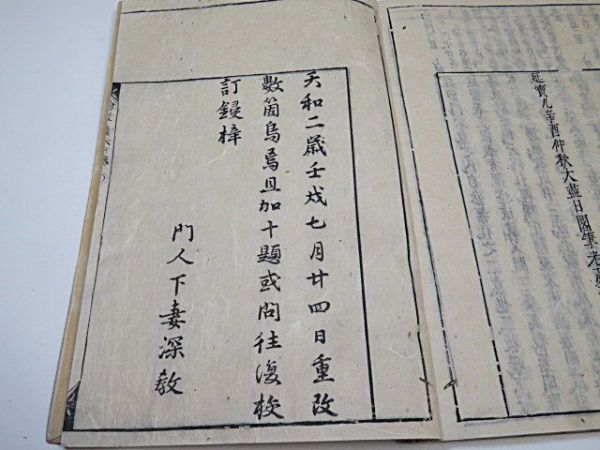 延寳九辛酉仲秋大盡日閣筆
天和二歲壬戌七月廿四日重改
數箇烏焉且加十題或問往復校
訂鋟梓
門人下妻深敎